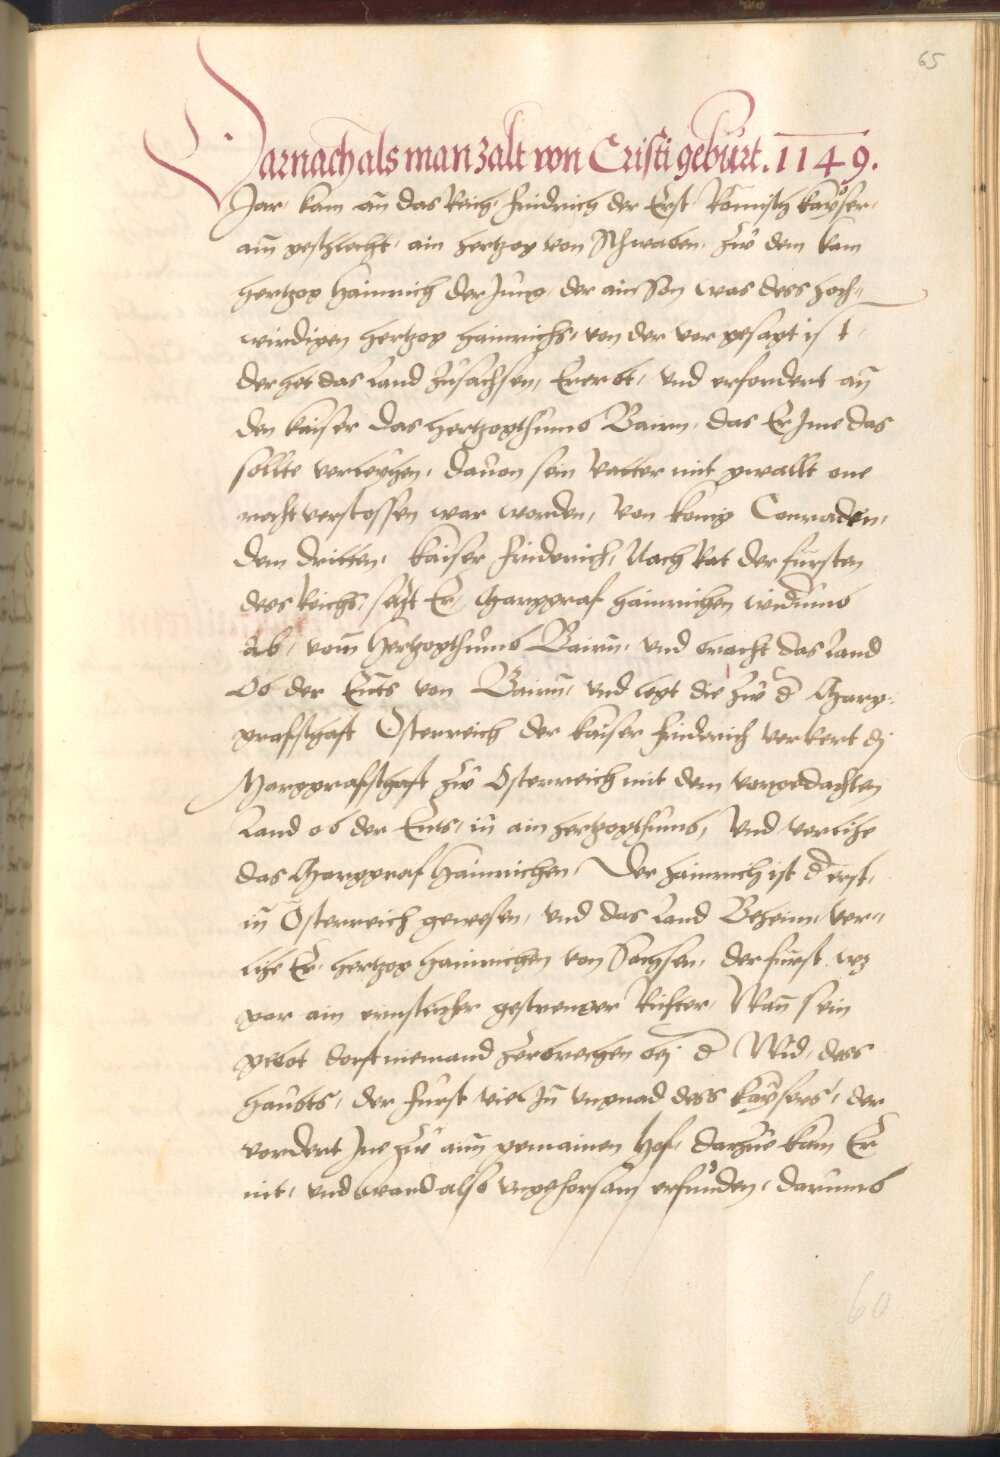 65
Darnach als man zalt von Cristi geburt. 1149.
Jar, kam an das Reich, Fridrich der Erst Römisch kayser,
ain geschlecht, ain hertzog von Schwaben, zů dem kam
hertzog Hainrich der Jung, der ain Son was dess hoch-
wirdigen hertzog Hainrichs, von der vor gesagt ist,
der het das Land zu Sachsen, Ererbt, vnd erfordert an
den kaiser das hertzogthumb Bairn, das Er Jme das
sollte verleyhen, dauon sein Vatter mit gwallt one
recht verstossen war worden, von konig Conraden,
dem dritten, kaiser Friderich, Nach Rat der fursten
des Reichs, setzt Er, Marggraf Hainrichen widumb
Ab, vom Hertzogthumb Bairn, vnd bracht das Land
Ob der Enns von Bairn, vnd legt die zů d Marg-
grafschaft Österreich der kaiser Friderich verkert dj
Marggrafschaft zů Osterreich mit dem vorgedachten
Land ob der Enns, in ain hertzogthumb, Vnd verlihe
das Marggraf Hainrichen, Der Hainrich ist d erst,
in Österreich gewesen, vnd das Land Beheim, ver-
lihe Er, hertzog Hainrichen von Sachsen, der furst wz
gar ain ernstlicher gestrenger Richter, Wan sein
gebot dorft niemand zerbrechen bej d Wid, dess
haubts, der furst viel Jn vngnad dess kaysers, der
vordert Jne zů aim gemainen Hof, darzue kam Er
nit, vnd ward also vngehorsam erfunden, darumb
60